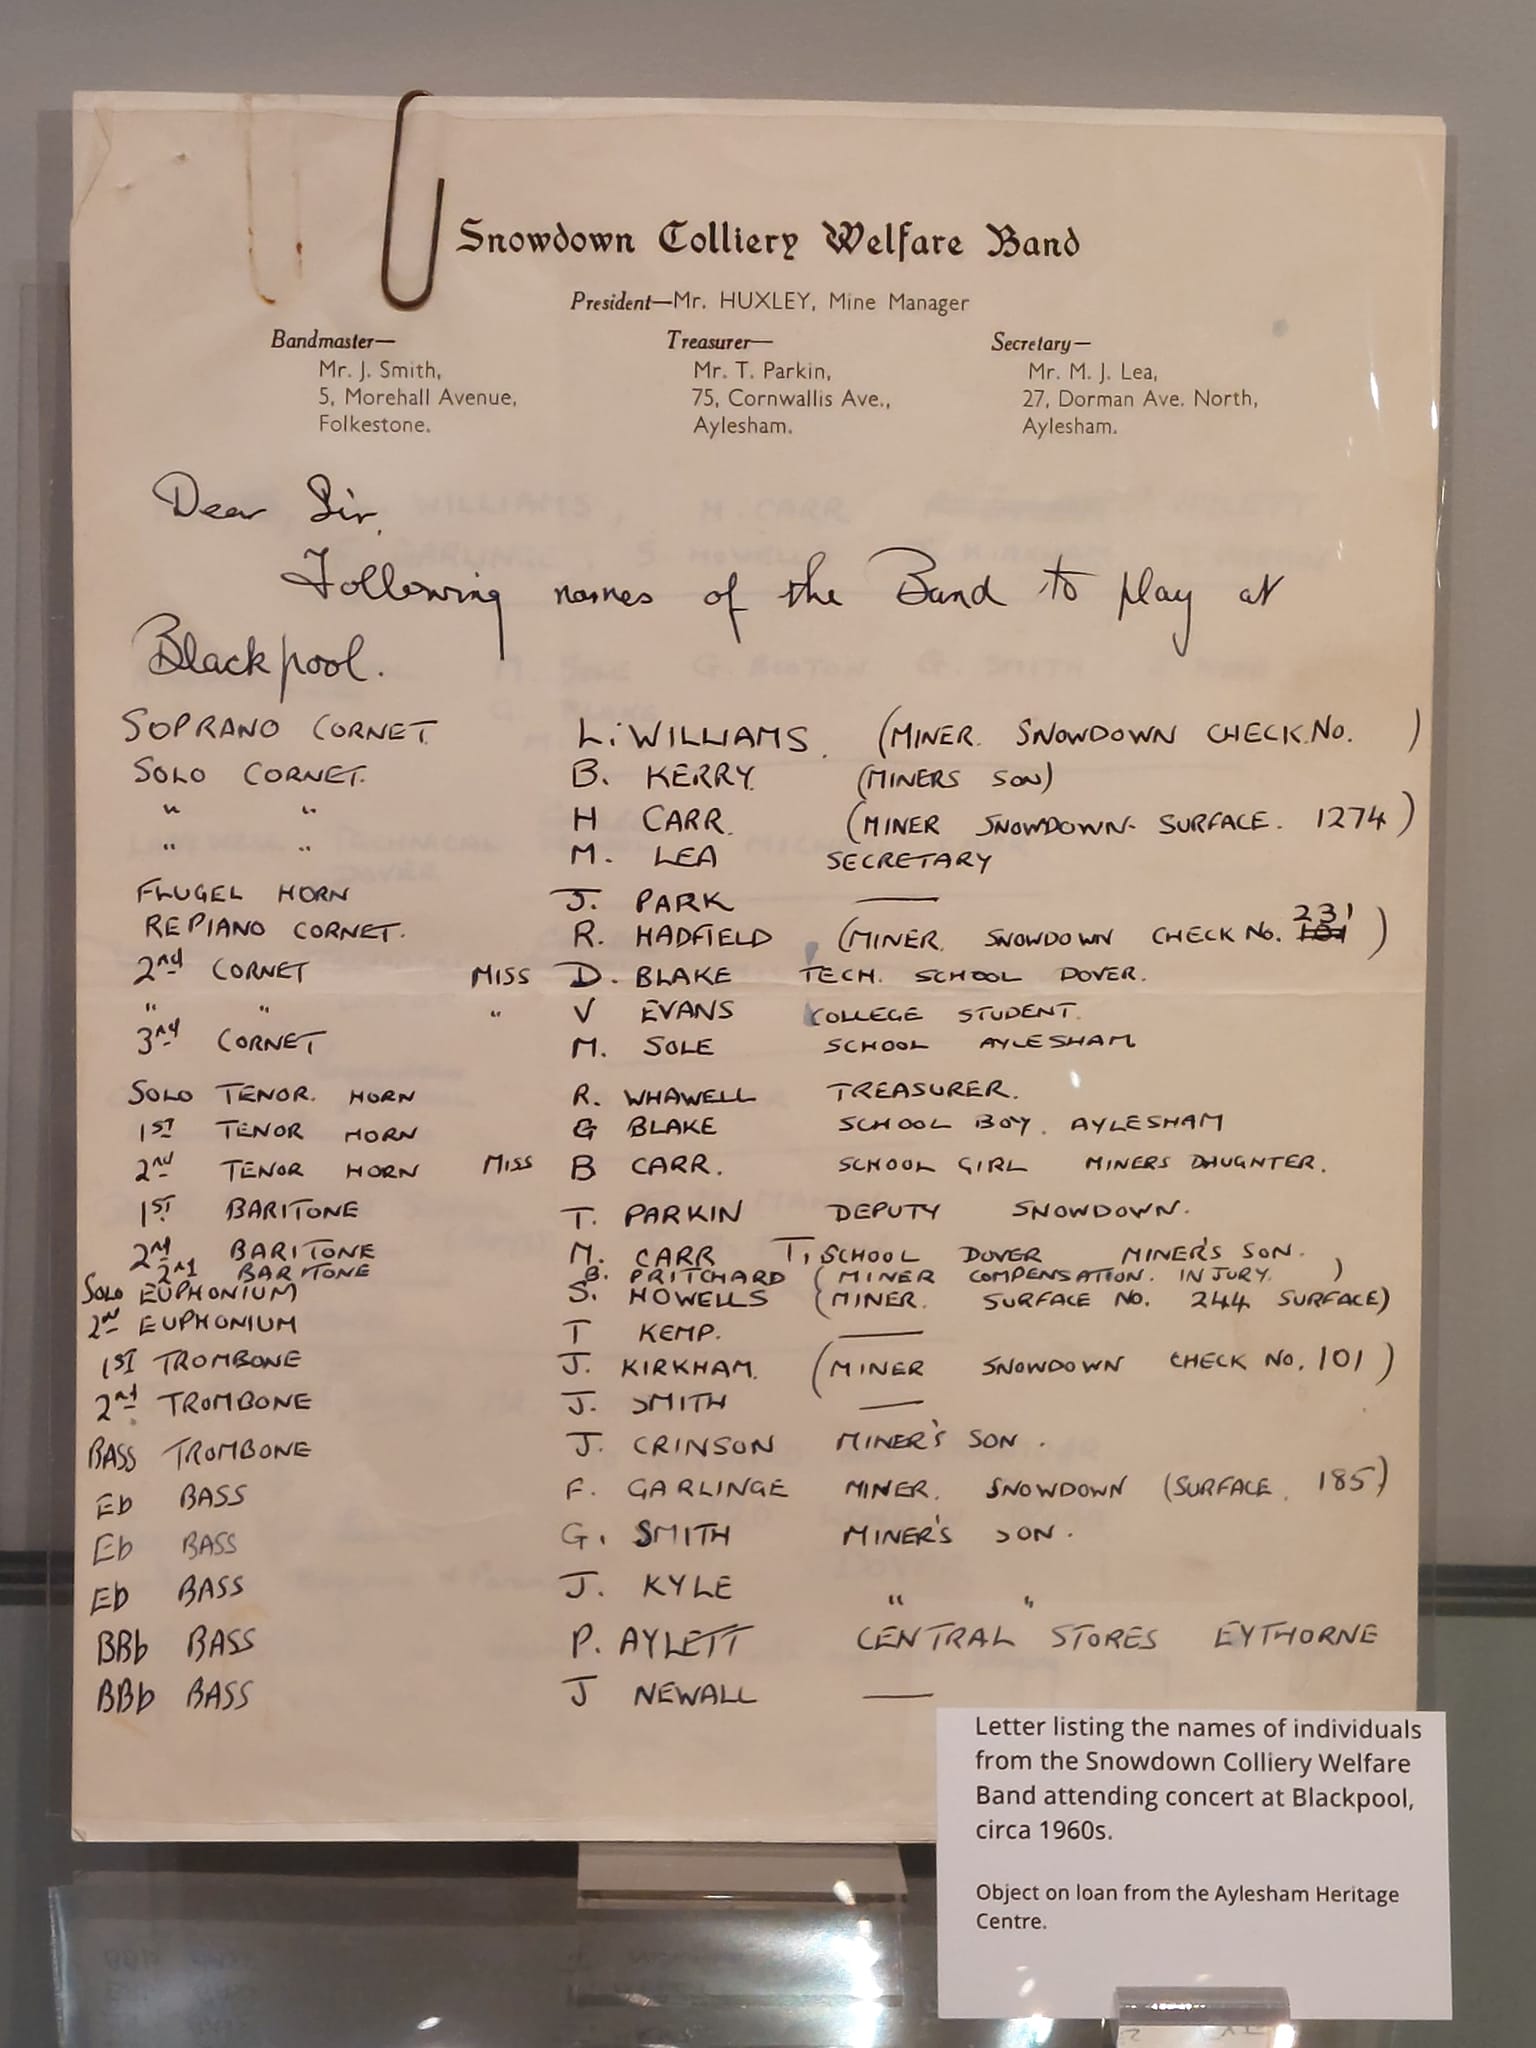 Snowdown Colliery Welfare Band
President—Mr. HUXLEY, Mine Manager
Bandmaster— Treasurer— Secretary—
Mr. J. Smith, Mr. T. Parkin, Mr. M. J. Lea,
5, Morehall Avenue, 75, Cornwallis Ave., 27, Dorman Ave. North,
Folkestone. Aylesham. Aylesham.
Dear Sir,
Following names of the Band to play at
Blackpool.
SOPRANO CORNET. L. WILLIAMS. (MINER. SNOWDOWN CHECK.NO. )
SOLO CORNET. B. KERRY. (MINERS SON)
" " H CARR. (MINER SNOWDOWN- SURFACE. 1274)
" " M. LEA SECRETARY
FLUGEL HORN J. PARK —
REPIANO CORNET. R. HADFIELD (MINER. SNOWDOWN CHECK NO. 231 101 )
2nd CORNET MISS D. BLAKE TECH. SCHOOL DOVER.
" " " V EVANS COLLEGE STUDENT.
3rd CORNET M. SOLE SCHOOL AYLESHAM
SOLO TENOR. HORN R. WHAWELL TREASURER.
1ST TENOR HORN G BLAKE SCHOOL BOY. AYLESHAM
2nd TENOR HORN MISS B CARR. SCHOOL GIRL MINERS DAUGHTER.
1ST BARITONE T. PARKIN DEPUTY SNOWDOWN.
2nd BARITONE M. CARR T. SCHOOL DOVER MINER'S SON.
2nd BARITONE B. PRITCHARD (MINER COMPENSATION. INJURY. )
SOLO EUPHONIUM S. HOWELLS (MINER. SURFACE NO. 244 SURFACE)
2nd EUPHONIUM T KEMP. —
1ST TROMBONE J. KIRKHAM. (MINER SNOWDOWN CHECK NO. 101 )
2nd TROMBONE J. SMITH —
BASS TROMBONE J. CRINSON MINER'S SON.
Eb BASS F. GARLINGE MINER. SNOWDOWN (SURFACE. 185)
Eb BASS G. SMITH MINER'S SON.
Eb BASS J. KYLE " "
BBb BASS P. AYLETT CENTRAL STORES EYTHORNE
BBb BASS J NEWALL —
Letter listing the names of individuals
from the Snowdown Colliery Welfare
Band attending concert at Blackpool,
circa 1960s.
Object on loan from the Aylesham Heritage
Centre.